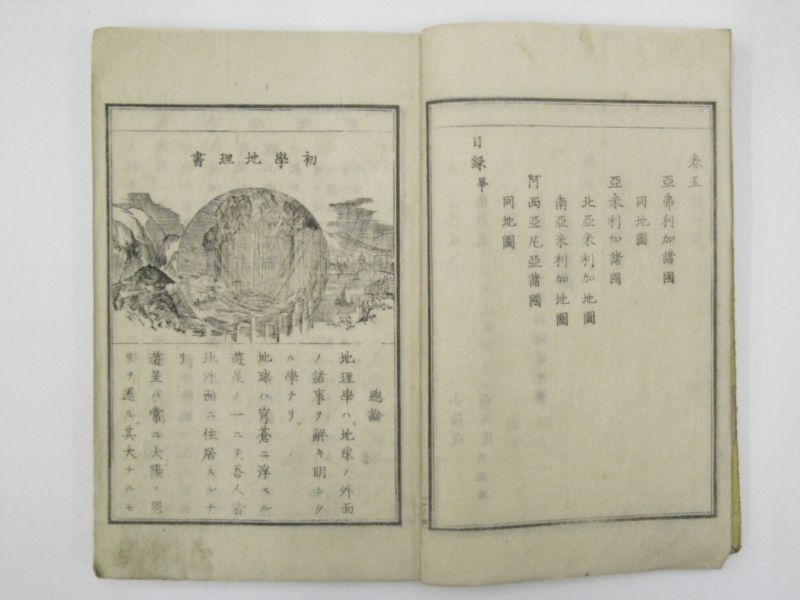 卷五
亞弗利加諸國
同地圖
亞米利加諸國
北亞米利加地圖
南亞米利加地圖
阿西亞尼亞諸國
同地圖
目録畢
初學地理書
總論
地理學ハ地球ノ外面
ノ諸事ヲ解キ明シタ
ル學ナリ
地球ハ穹蒼ニ浮ベル
遊星ノ一ニテ吾人皆
此外面ニ住居スルナ
リ
遊星ハ常ニ大陽ノ周
リヲ運ル其大ナルモ